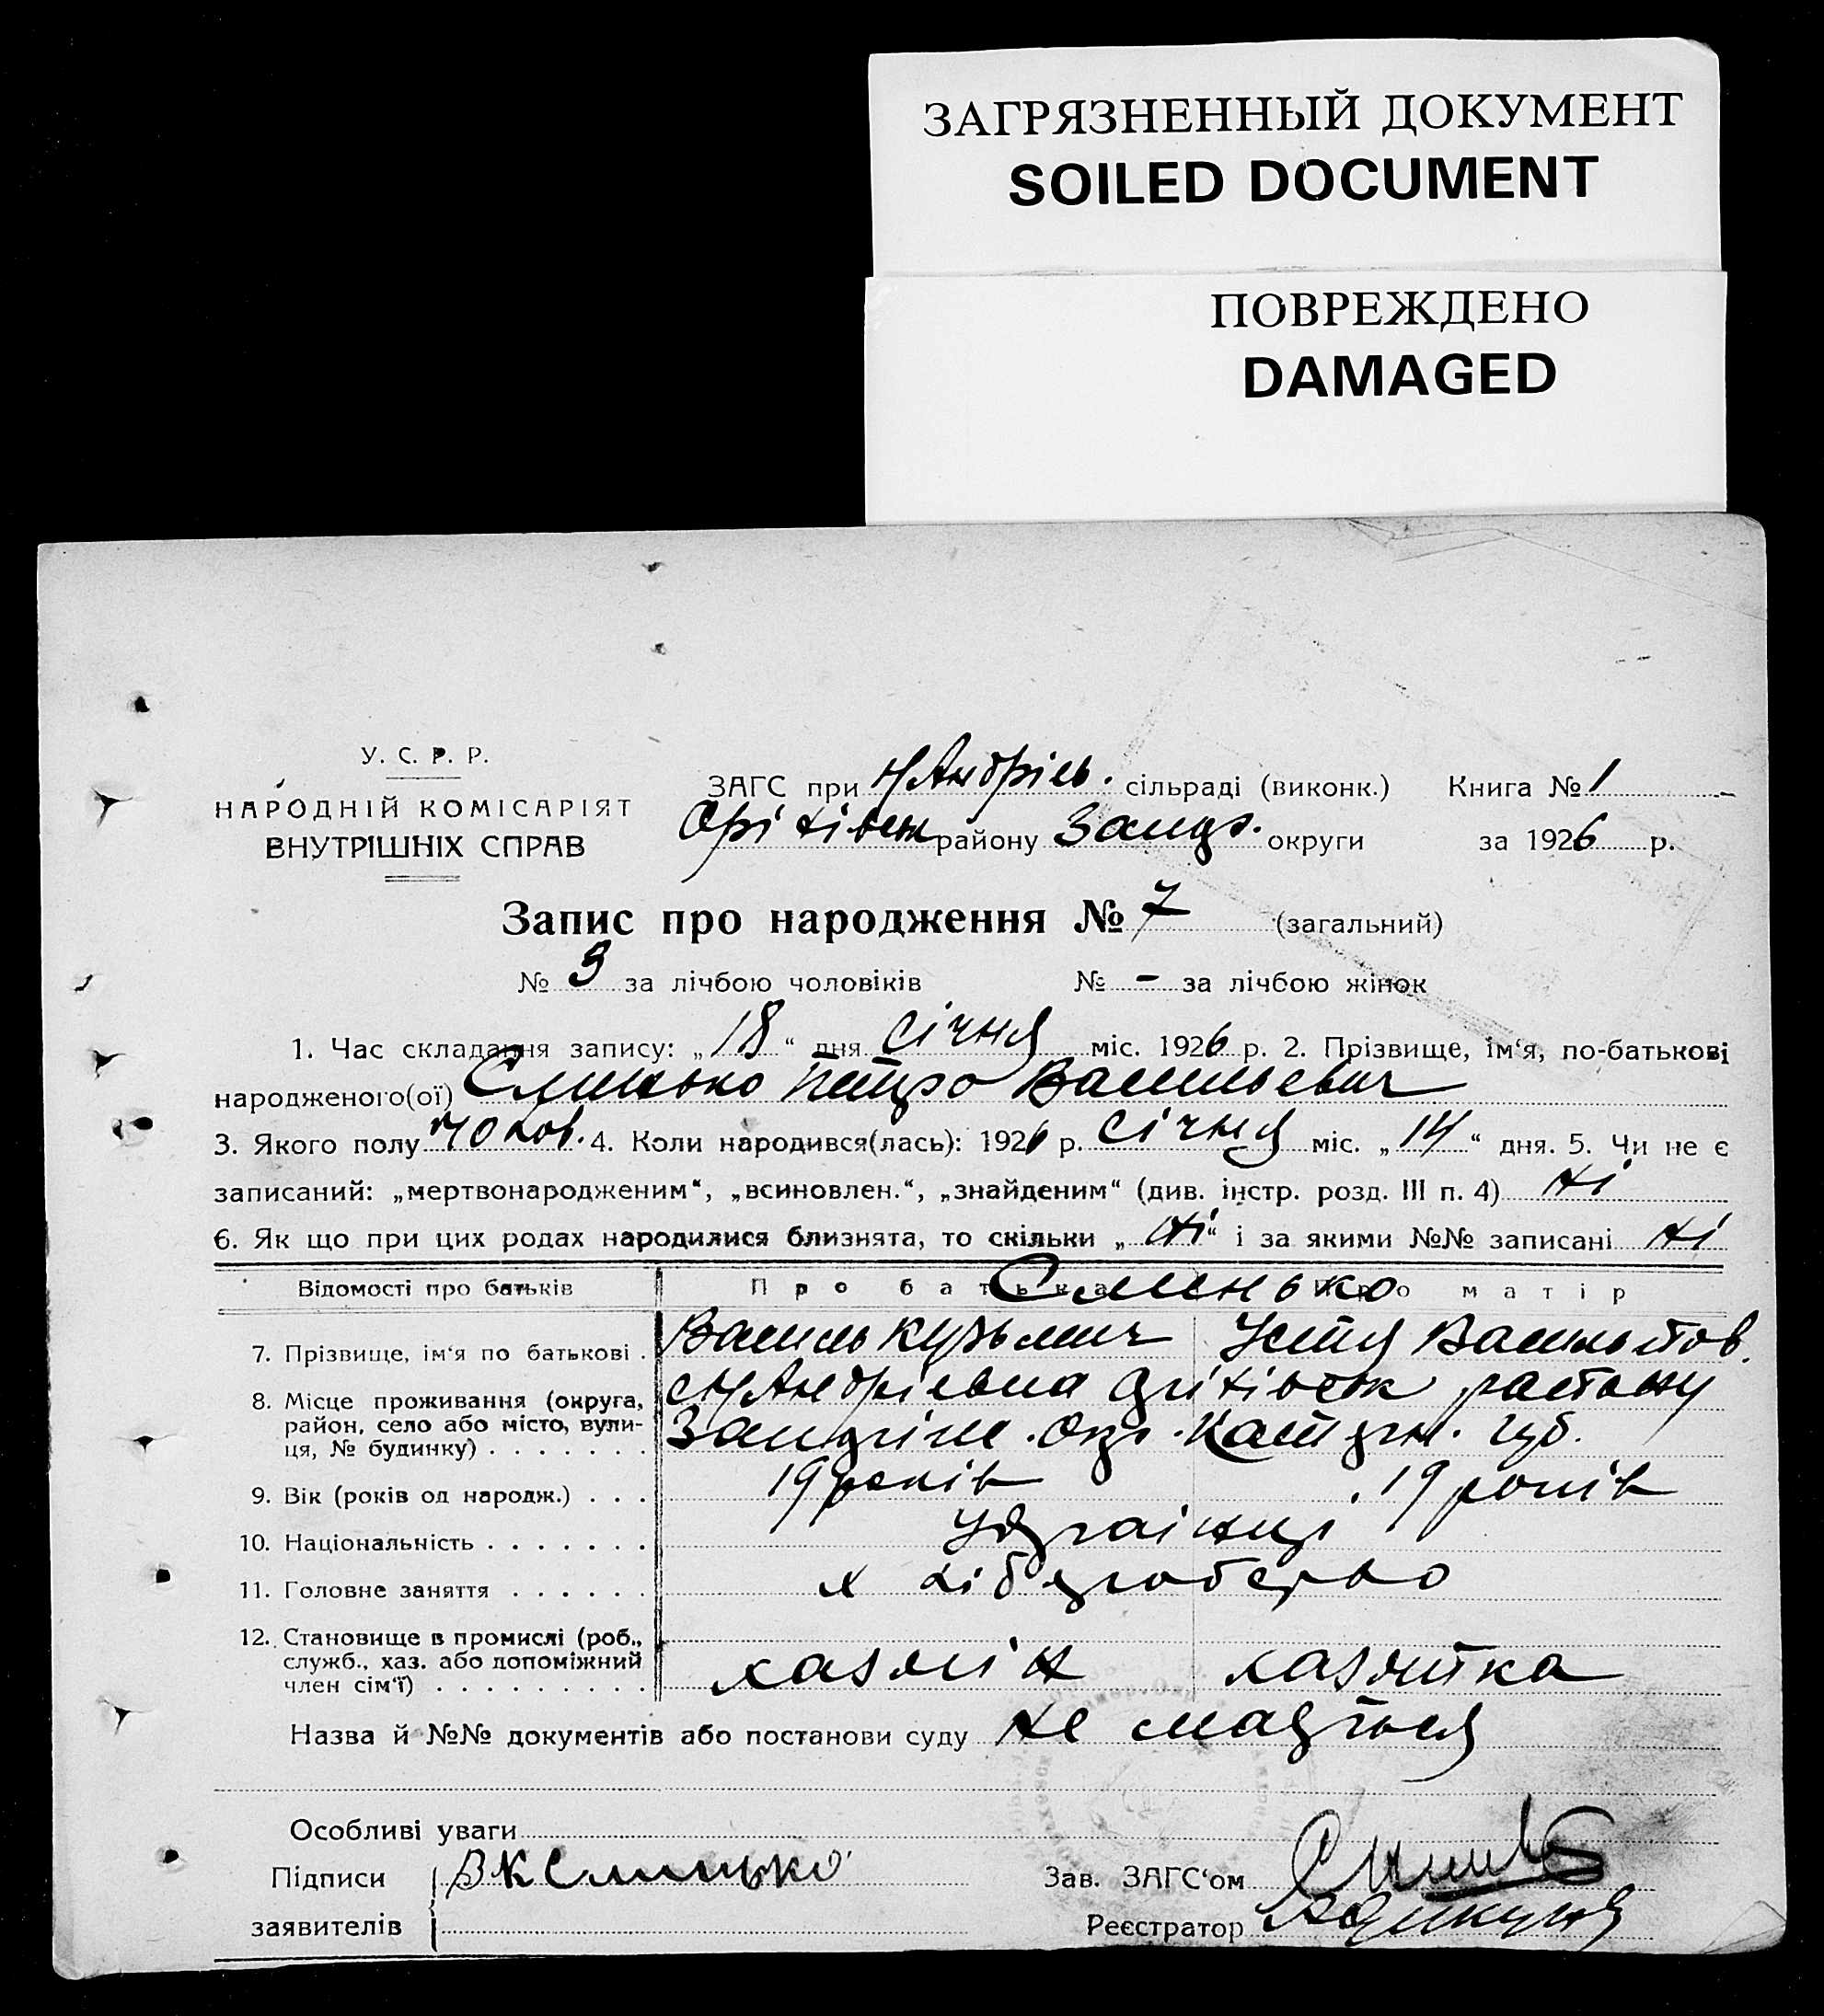 ЗАГРЯЗНЕННЫЙ ДОКУМЕНТ
SOILED DOCUMENT
ПОВРЕЖДЕНО
DAMAGED
У. С. Р. Р.
НАРОДНІЙ КОМІСАРІЯТ
ВНУТРІШНІХ СПРАВ
ЗАГС при Н Андрієв. сільраді (виконк.) Книга № 1
Оріхівськ району Запор. округи за 1926 р.
Запис про народження № 7 (загальний)
№ 3 за лічбою чоловіків № - за лічбою жінок
1. Час складання запису: „18“ дня Січня міс. 1926 р. 2. Прізвище, ім‘я, по-батькові
народженого(ої) Слинько Петро Васильевич
3. Якого полу чолов. 4. Коли народився(лась): 1926 р. Січня міс. „14“ дня. 5. Чи не є
записаний: „мертвонародженим“, „всиновлен.“, „знайденим“ (див. інстр. розд. III п. 4) Ні
6. Як що при цих родах народилися близнята, то скільки „Ні“ і за якими №№ записані Ні
Відомості про батьків Про батька Про матір
Слинько
7. Прізвище, ім‘я по батькові . Василь Кузьмич Устя Васильтов.
8. Місце проживання (округа, район, село або місто, вулиця, № будинку) . . . . . . .
Запоріж. окр. Катерин. губ.
9. Вік (років од народж.) . . . 19 років 19 років
10. Національність . . . . . . . Українці
11. Головне заняття . . . . . . хліборобство
12. Становище в промислі (роб., служб., хаз. або допоміжний член сім‘ї) . . . . . . . . . хазяїн хазяйка
Назва й №№ документів або постанови суду не мається
Особливі уваги
Підписи заявителів В К Слинько
Зав. ЗАГС‘ом
Реєстратор